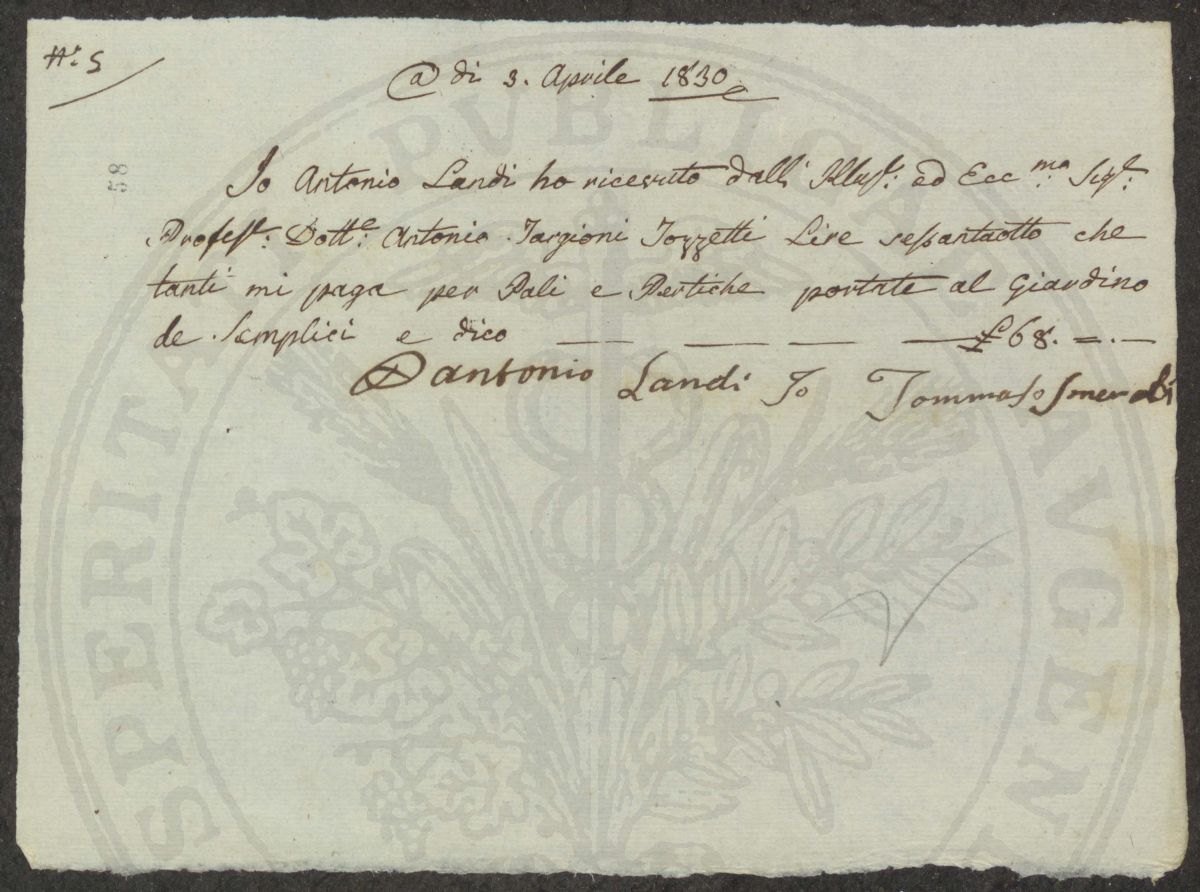 N.º 5
@ di 3. Aprile 1830
58
Io Antonio Landi ho ricevuto dall' Illusſ.: ed Ecc.ma Sigſ.:
Profeſſ.: Dott.e: Antonio Targioni Tozzetti Lire sessantaotto che
tanti mi paga per Pali e Pertiche portate al Giardino
de Semplici e dico — — — — £ 68. = . —
antonio Landi Io Tommaso
PUBLICAE AUGEN
SPERITA